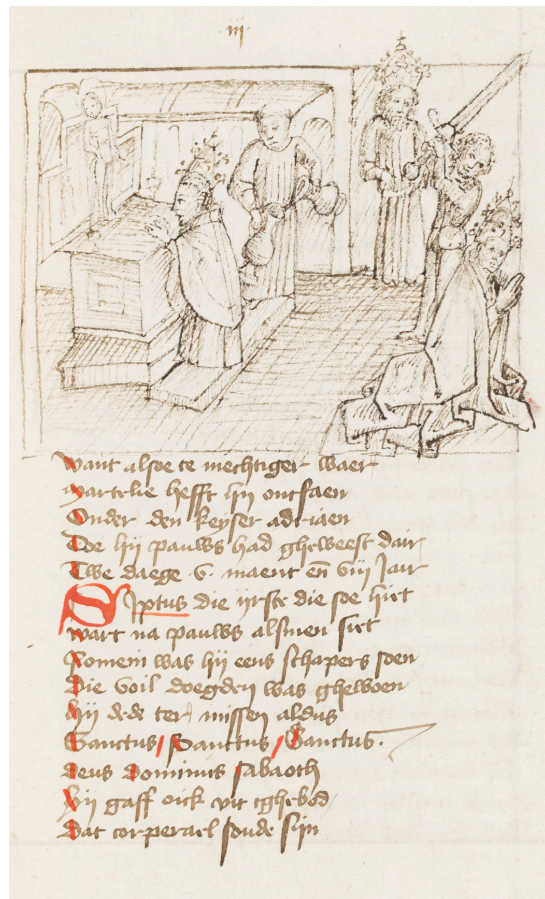 iij
want alsoe te mechtiger waer
Martelie hefft hij ontfaen
Onder den keyser adriaen
Doe hij pauws had gheweest dair
Twe daege v. maent eñ viij Jair
Sixtus die yrste die soe hiet
wart na pauws alsmen siet
Romein was hij eens schapers soen
Die voil doegden was ghewoen
hij dede ter missen aldus
Sanctus / Sanctus / Sanctus.
deus dominus sabaoth
hij gaff oick vit tghebod
Dat corperael soude sijn